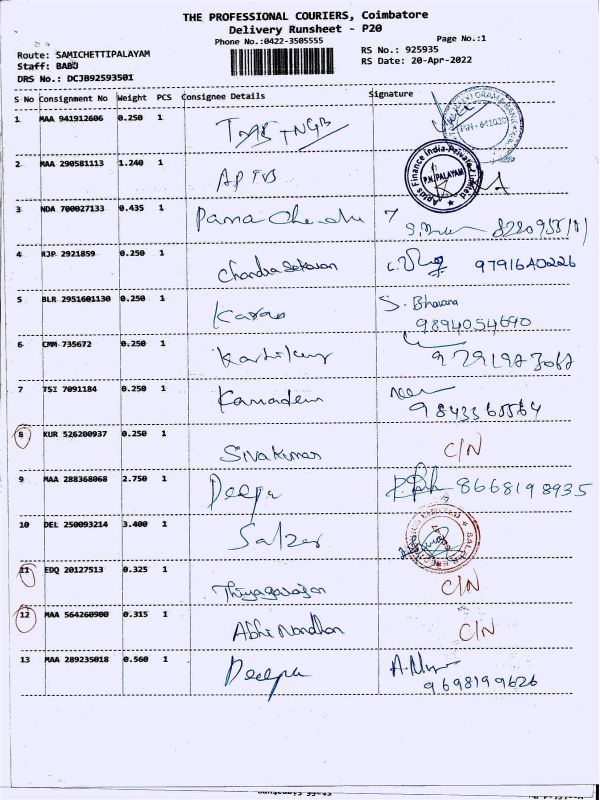 THE PROFESSIONAL COURIERS, Coimbatore
Delivery Runsheet - P20
Phone No.:0422-3505555
Page No.:1
Route: SAMICHETTIPALAYAM
RS No.: 925935
Staff: BABU
RS Date: 20-Apr-2022
DRS No.: DCJB92593501
S No Consignment No Weight PCS Consignee Details Signature
1 MAA 941912606 0.250 1
PIN - 641020
2 MAA 290581113 1.240 1
Aptus Finance India Private Limited
P.N. PALAYAM
3 NDA 700027133 0.435 1
4 RJP 2921859 0.250 1
Chandra Sekaran 9791640226
5 BLR 2951601130 0.250 1
Karan S. Bhavana
9894054690
6 CMM 735672 0.250 1
7 TSI 7091184 0.250 1
8 KUR 526200937 0.250 1
Sivakumar C/N
9 MAA 288368068 2.750 1
Deepa 8668198935
10 DEL 250093214 3.400 1
Salzer
11 EDQ 20127513 0.325 1
Thiyagarajan C/N
12 MAA 564260900 0.315 1
Abhi Nandhan C/N
13 MAA 289235018 0.560 1
Deepa
9698199626